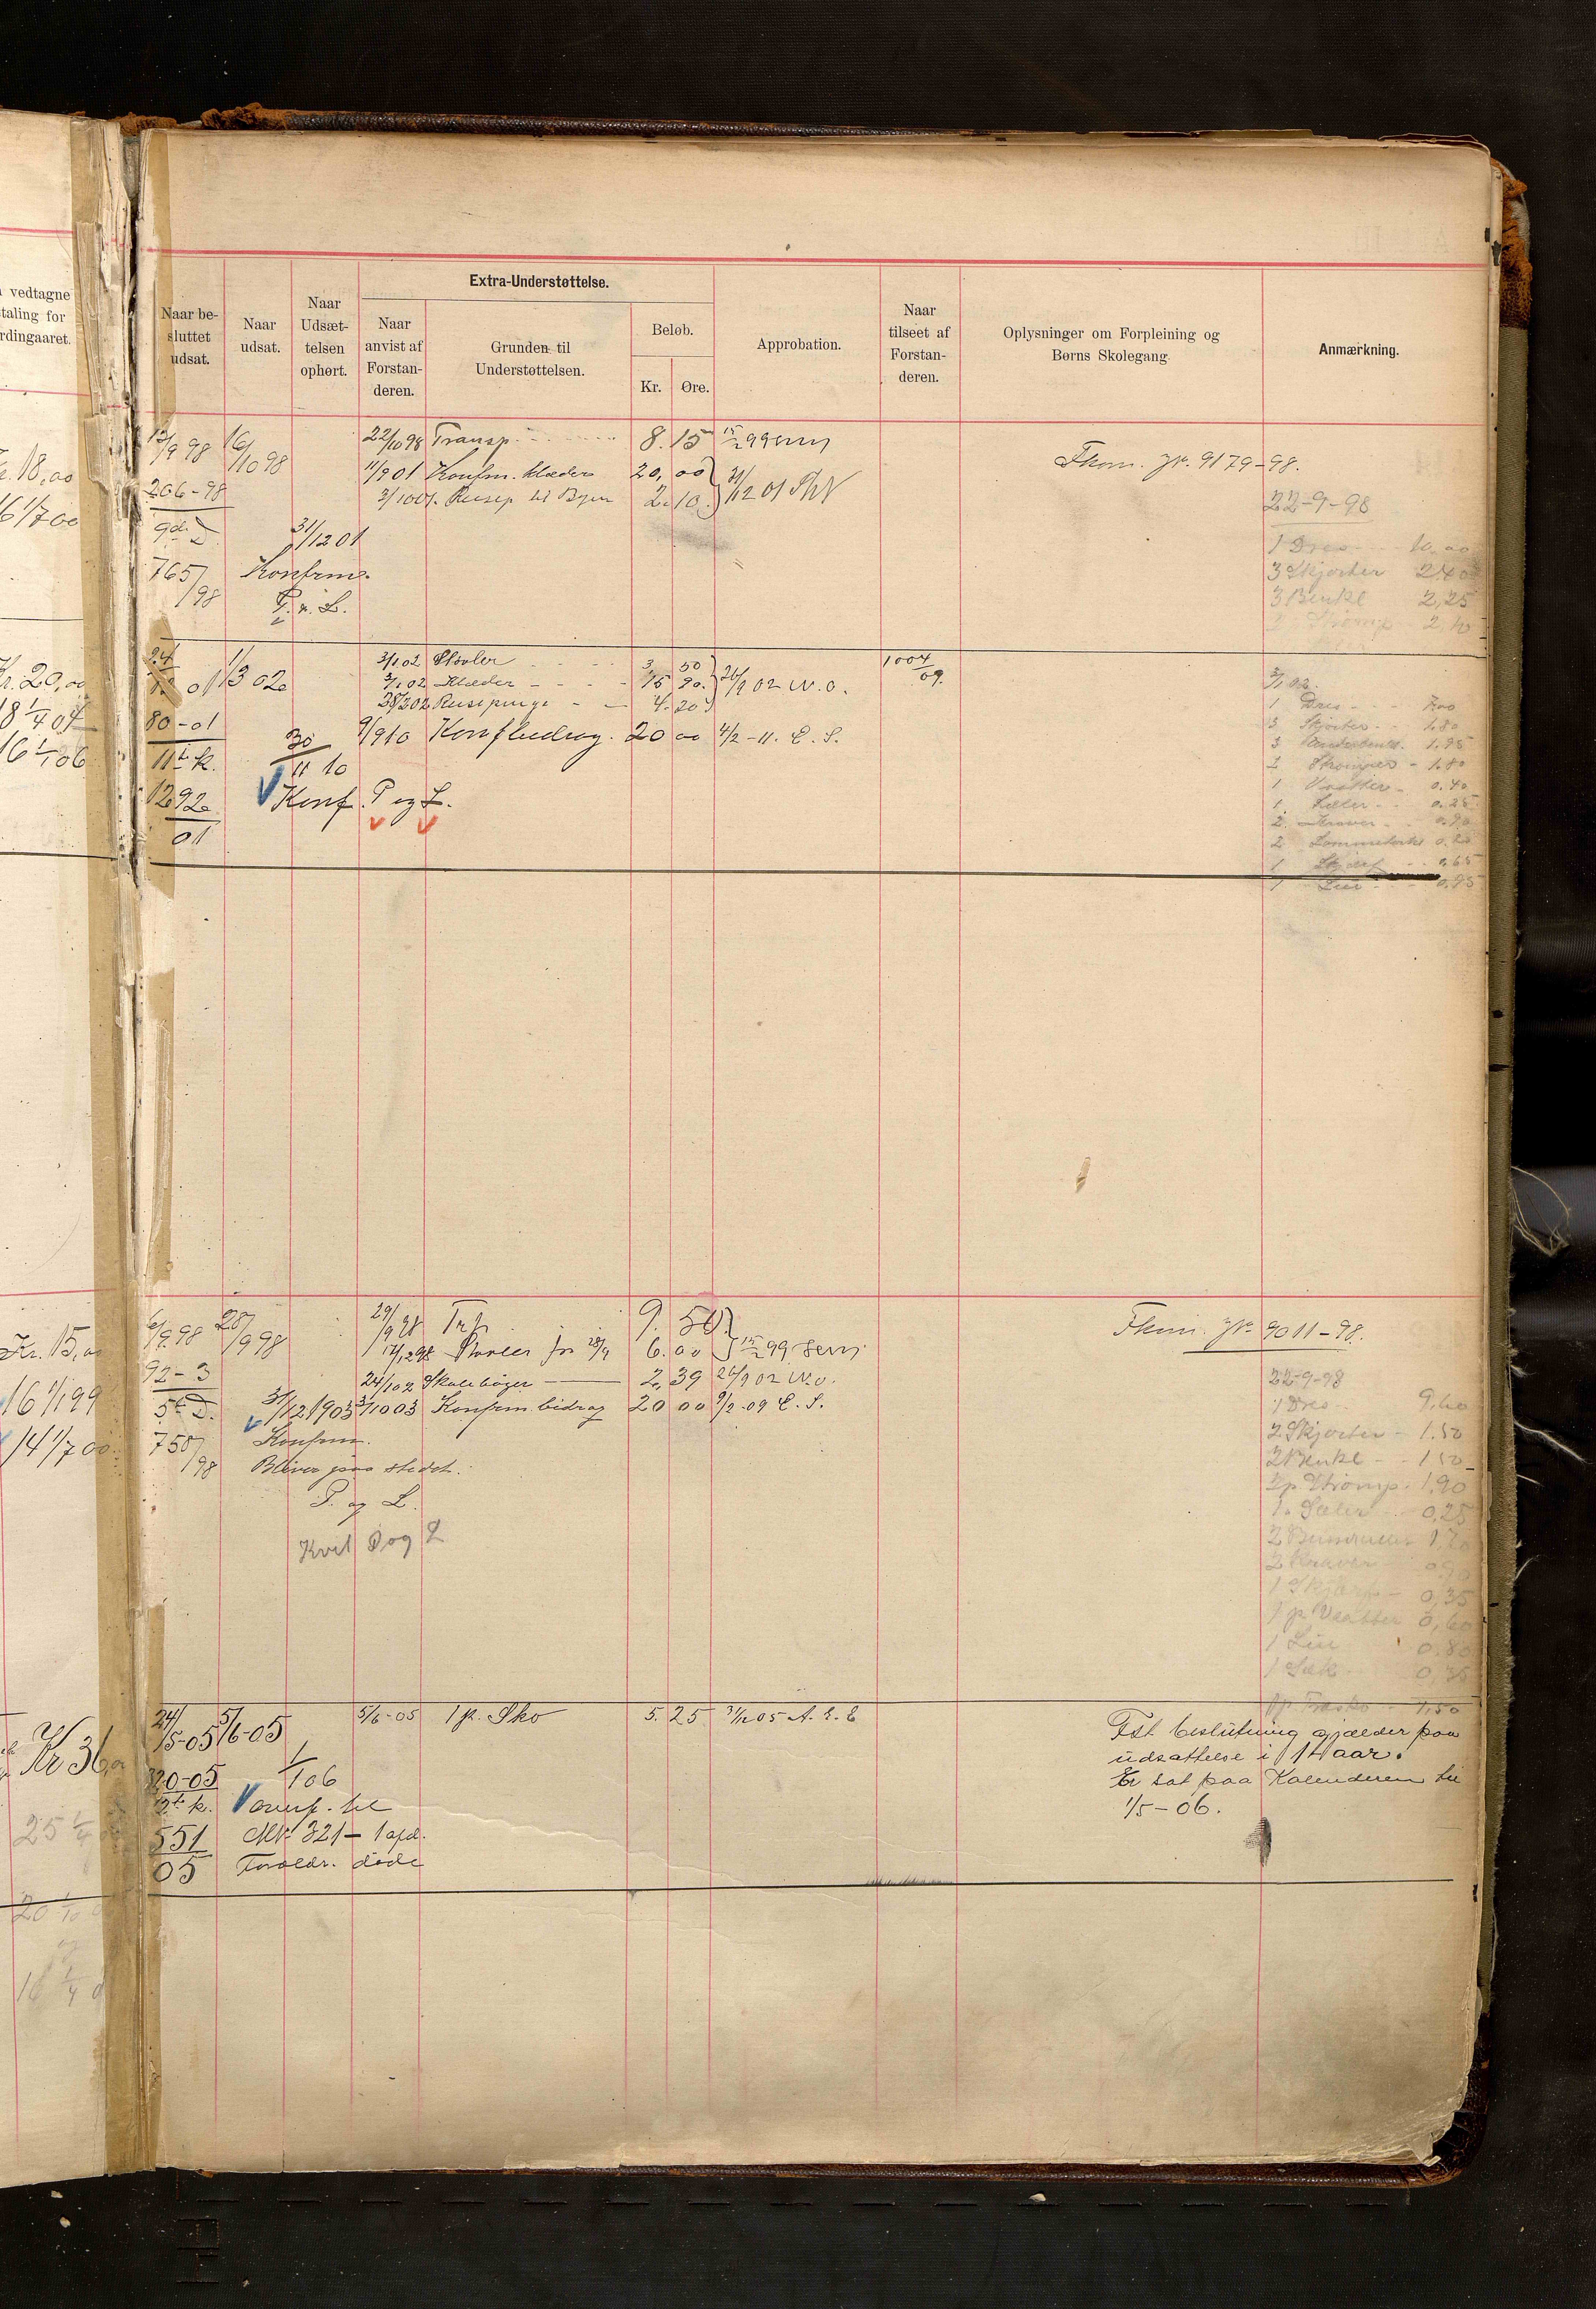 vedtagne
taling for
rdingaaret.
Kr. 15,00
16 1/1 99
14 1/7 00
Kr 36,
Extra-Understøttelse.
Naar besluttet udsat.
Naar udsat.
Naar Udsættelsen ophørt.
Naar anvist af Forstanderen.
Grunden til Understøttelsen.
Beløb.
Kr. Øre.
Approbation.
Naar tilseet af Forstanderen.
Oplysninger om Forpleining og Børns Skolegang
Anmærkning.
12/9 98 16/10 98 22/10 98 Transp. 8. 15 15/2 99
11/9 01 Konfm. klæder 20, 00
Fkom. Jr. 9179-98.
206-98 3/10 01. Reisep til Byen 2. 10 31/12 01
22-9-98
9de D. 31/12 01
1 Dres 10,00
765/98 Konfrm.
3 Skjorter 2.40
P. & L.
3 Benkl 2,25
Strømp 2,10
01 1/3 02 3/1 02 Støvler 3 50
3/1 02 Klæder 15 90. 26/9 02 W.O.
28/2 02 Reisepenge 4. 20
1004/09.
80-01 9/9 10 Konfbidrag. 20 00 4/2-11. E. S.
11te k. 30/11 10
1292/01 Konf. P og L.
3/1 02.
1 Dres 7.00
3 Skjorter 1.80
3 Underbenkl. 1.95
2 Strømper 1.80
1 Vaatter 0.40
1 Seler 0.25
2 Kraver 0.90
2 Lommetørkl 0.20
1 Skjærf 0.65
1 Lue 0.95
6/9 98 28/9 98 29/9 98 Trp 9. 50
14/12 98 Støvler for 28/9 6. 00 15/2 99
Fkom. Jr. 9011-98.
92-3 24/1 02 Skolebøger 2. 39 26/9 02 W.O.
5te D. 31/12 1903 3/10 03 Konfrm. bidrag 20 00 9/2-09 E. S.
750/98 Konfrm.
Bliver paa stedet.
P. og L.
Kvit P og L
22-9-98
1 Dres 9,60
2 Skjorter 1.50
2 Benkl 1.50
2 p. Strømp. 1,90
1 Seler 0,25
2 Kraver 0,90
1 Skjærf 0,35
1 p Vaatter 0,60
1 Lue 0.80
1 Sæk 0,35
1 p Træsko 1,50
24/5-05 5/6-05 5/6-05 1 p. Sko 5. 25 31/12 05 A. E. E
320-05 1/1 06
12te k. overf. til
551/05 Nr. 321-1 afd.
Forældr. døde
Fst beslutning gjælder paa
udsættelse i 1 aar.
Er sat paa Kalenderen til
1/5-06.